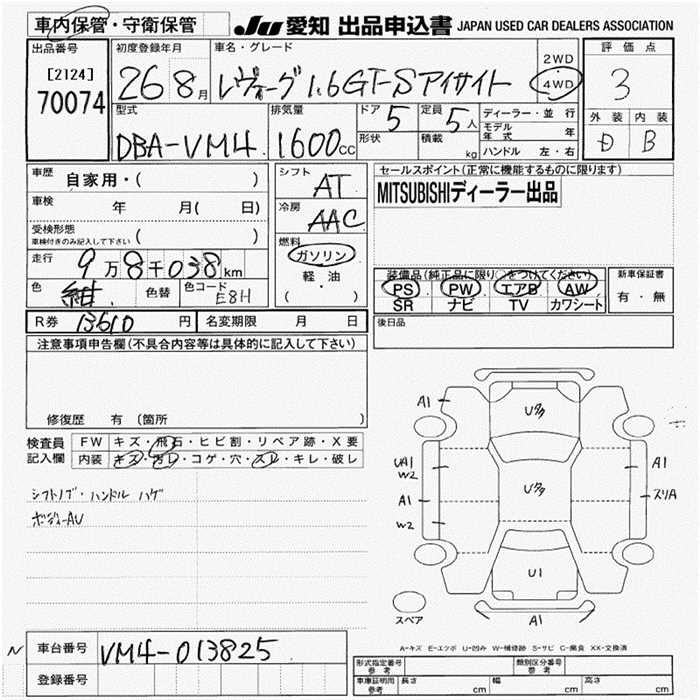 車内保管・守衛保管 JU 愛知 出品申込書 JAPAN USED CAR DEALERS ASSOCIATION
出品番号 初度登録年月 車名・グレード 2WD 評価点
[2124] 26 8月 レヴォーグ1.6GT-Sアイサイト 4WD 3
70074
型式 排気量 ドア 5 定員 5人 ディーラー・並行 外装 内装
モデル年式 年
DBA-VM4 1600cc 形状 積載 kg ハンドル 左・右 D B
車歴 自家用・( ) シフト AT セールスポイント(正常に機能するものに限ります)
車検 年 月(日) 冷房 AAC MITSUBISHIディーラー出品
受検形態
車検付きのみ記入して下さい ( )
燃料 ガソリン
走行 9万8千038km 軽・油 装備品(純正品に限り○をつけてください) 新車保証書
色 紺 色替 色コード E8H ( ) PS PW エアB AW 有・無
SR ナビ TV カワシート
R券 13610円 名変期限 月 日 後日品
注意事項申告欄(不具合内容等は具体的に記入して下さい)
修復歴 有(箇所 )
検査員 FW キズ・飛石・ヒビ割・リペア跡・X要
記入欄 内装 キズ・汚レ・コゲ・穴・スレ・キレ・破レ
シフトノブ・ハンドル ハゲ
ボディーAU
A1 Uタ
UA1 A1
W2 Uタ スリA
A1
W2
U1
スペア A1
A-キズ E-エクボ U-凹み W-補修跡 S-サビ C-腐食 XX-交換済
N 車台番号 VM4-013825
登録番号
形式指定番号 参考 類別区分番号 参考
車庫証明用 参考 長さ cm 幅 cm 高さ cm